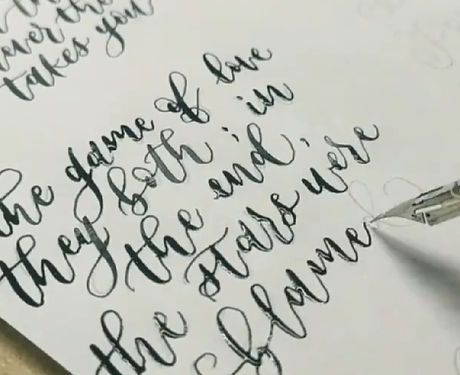 the
takes you
the game of love
they both ; in
the end,
the stars were
blame